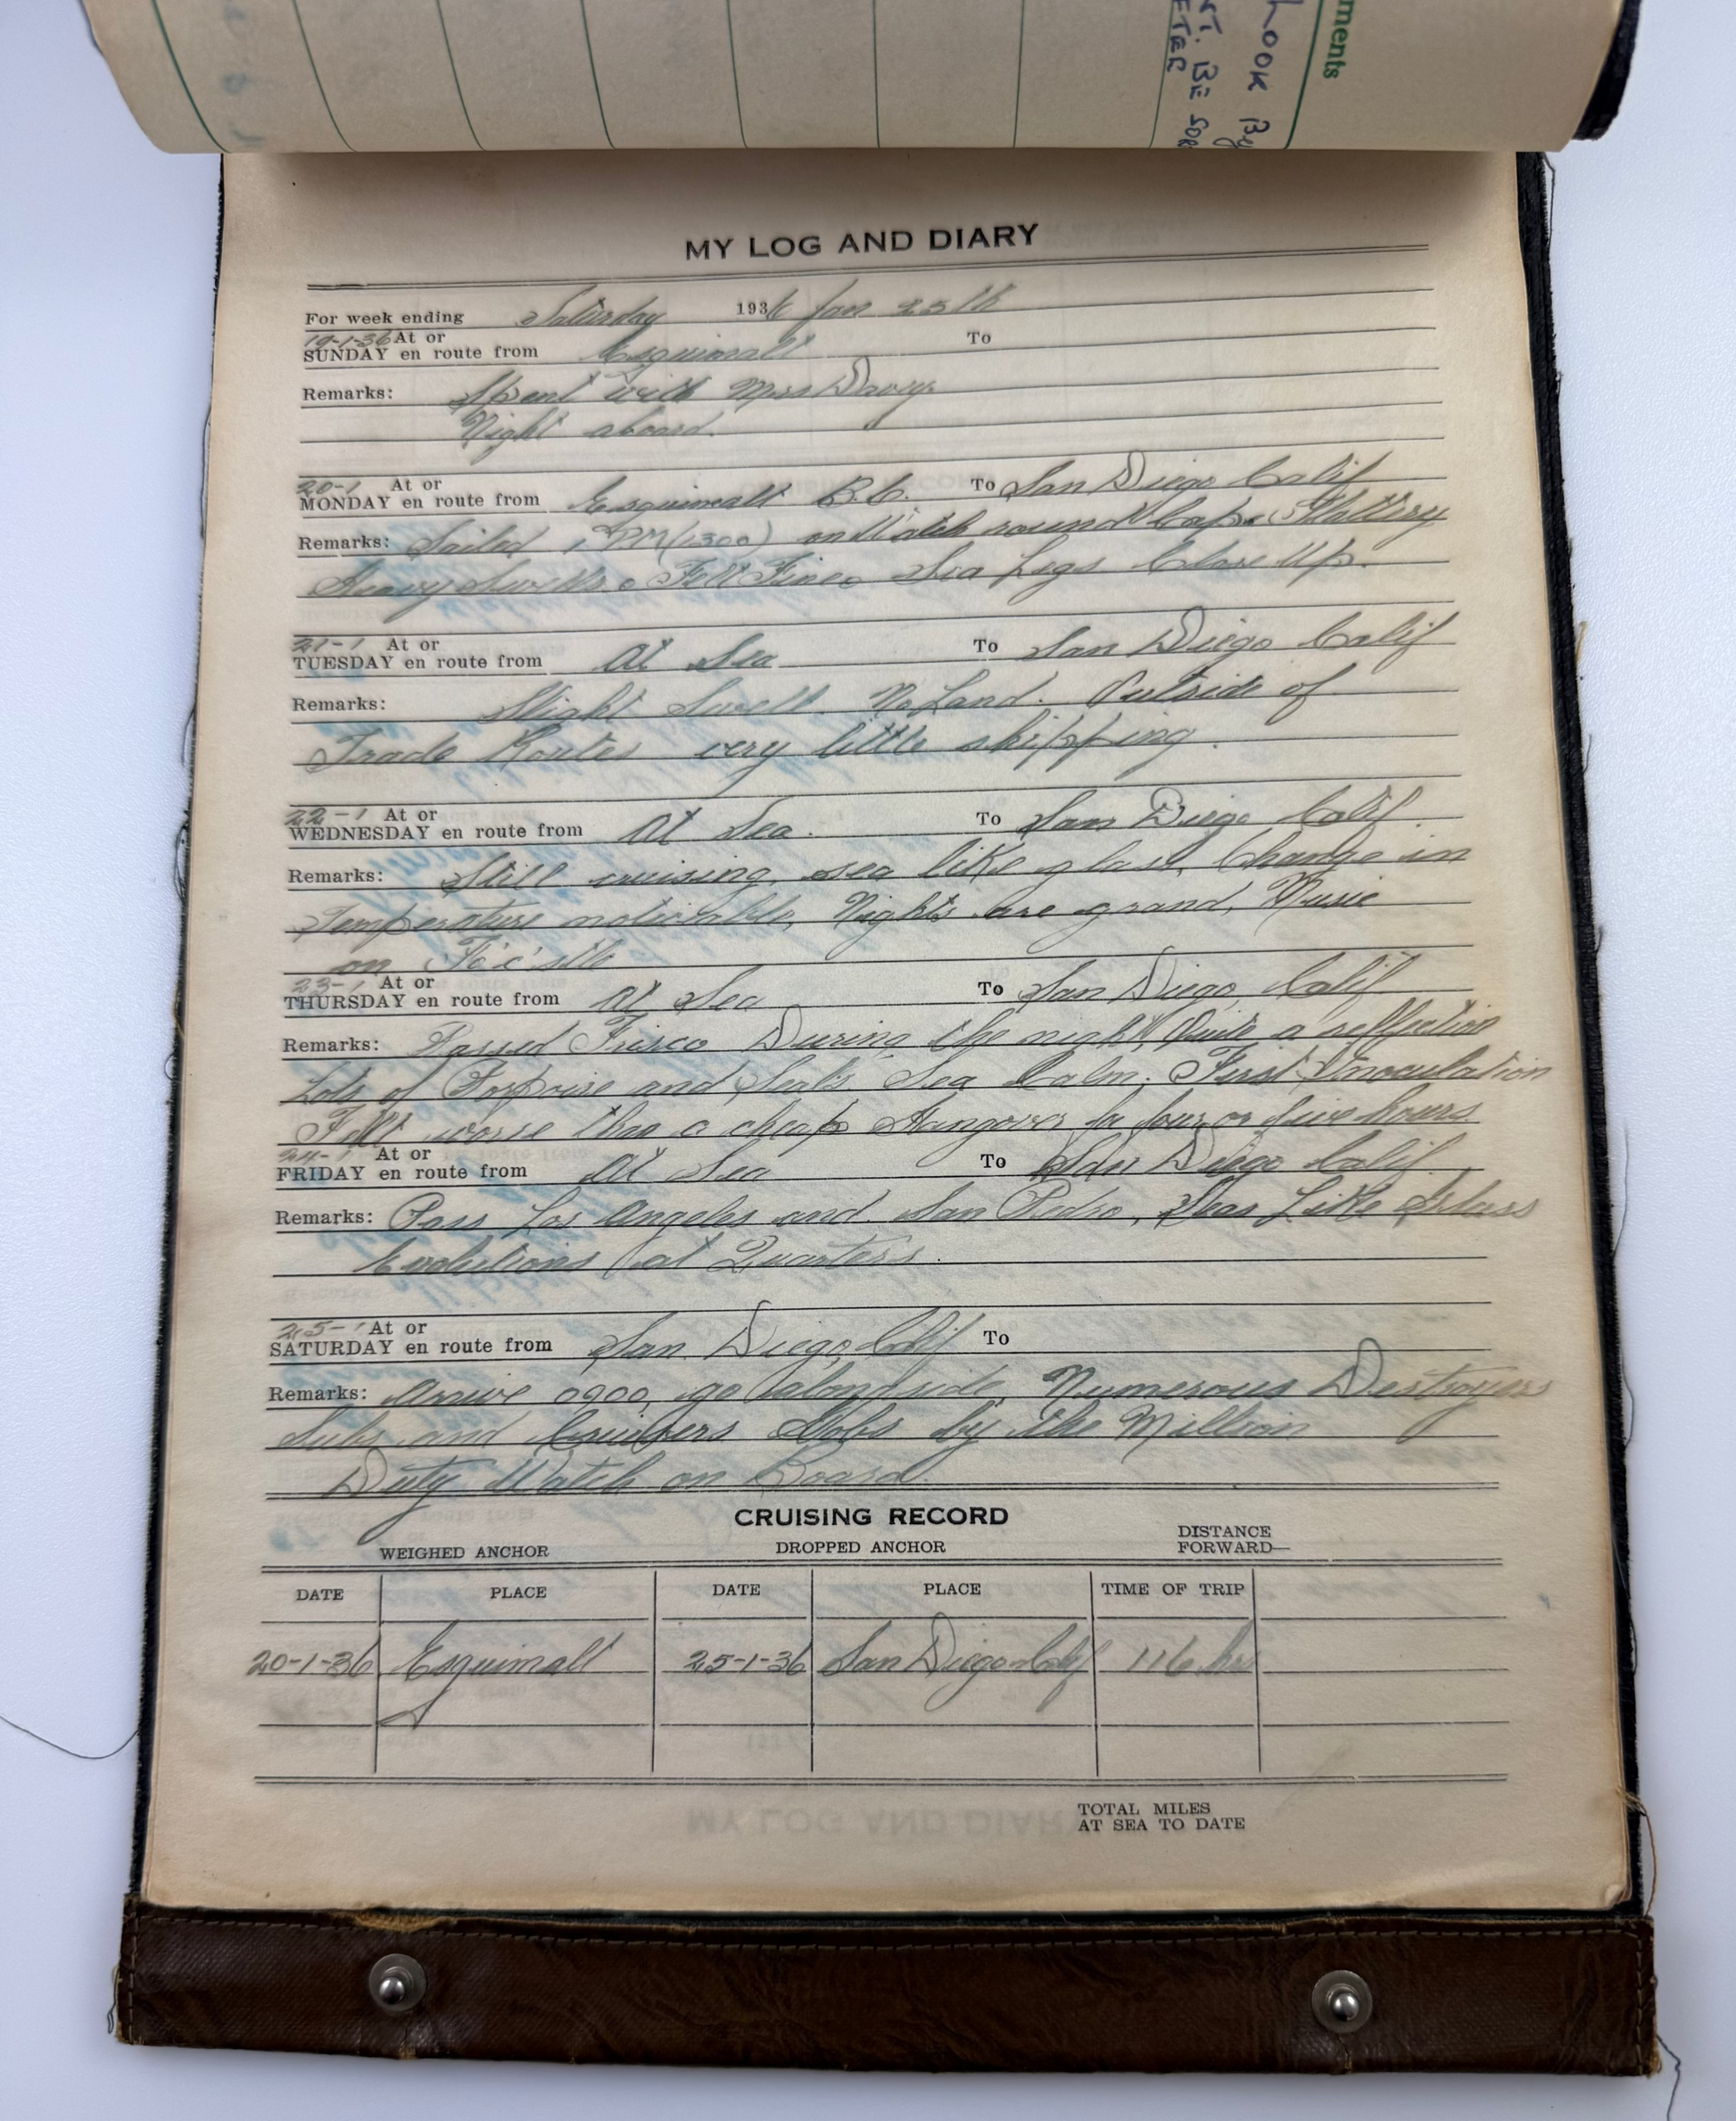 ments
Look By
NT. BE SOR
ETER
MY LOG AND DIARY
For week ending Saturday 1936 Jan 25th
19-1-36 At or
SUNDAY en route from Esquimalt To
Remarks: Spent with Mrs Davy.
Night aboard.
20-1 At or
MONDAY en route from Esquimalt B.C. To San Diego Calif
Remarks: Sailed 1 PM (1300) on Watch round Cape Flattery
Heavy Swells. Felt Fine. Sea Legs Close Up.
21-1 At or
TUESDAY en route from At Sea To San Diego Calif
Remarks: Slight Swell. No Land. Outside of
Trade Routes very little shipping.
22-1 At or
WEDNESDAY en route from At Sea. To San Diego Calif.
Remarks: Still cruising, sea like glass, Change in
Temperature noticable, Nights are grand, Music
on Fo'c'sle
23-1 At or
THURSDAY en route from At Sea To San Diego, Calif
Remarks: Passed Frisco During the night, Quite a reflection
Lots of Porpoise and Seals Sea Calm. First Innoculation
Felt worse than a cheap Hangover for four or five hours.
24-1 At or
FRIDAY en route from At Sea To San Diego Calif.
Remarks: Pass Los Angeles and San Pedro, Seas Like Glass
Evolutions at Quarters.
25-1 At or
SATURDAY en route from San Diego, Calif To
Remarks: Arrive 0900, go alongside, Numerous Destroyers
Subs and Cruisers Gobs by the Million
Duty Watch on Board.
CRUISING RECORD
WEIGHED ANCHOR DROPPED ANCHOR DISTANCE
FORWARD—
DATE PLACE DATE PLACE TIME OF TRIP
20-1-36 Esquimalt 25-1-36 San Diego Calif 116 hrs
TOTAL MILES
AT SEA TO DATE